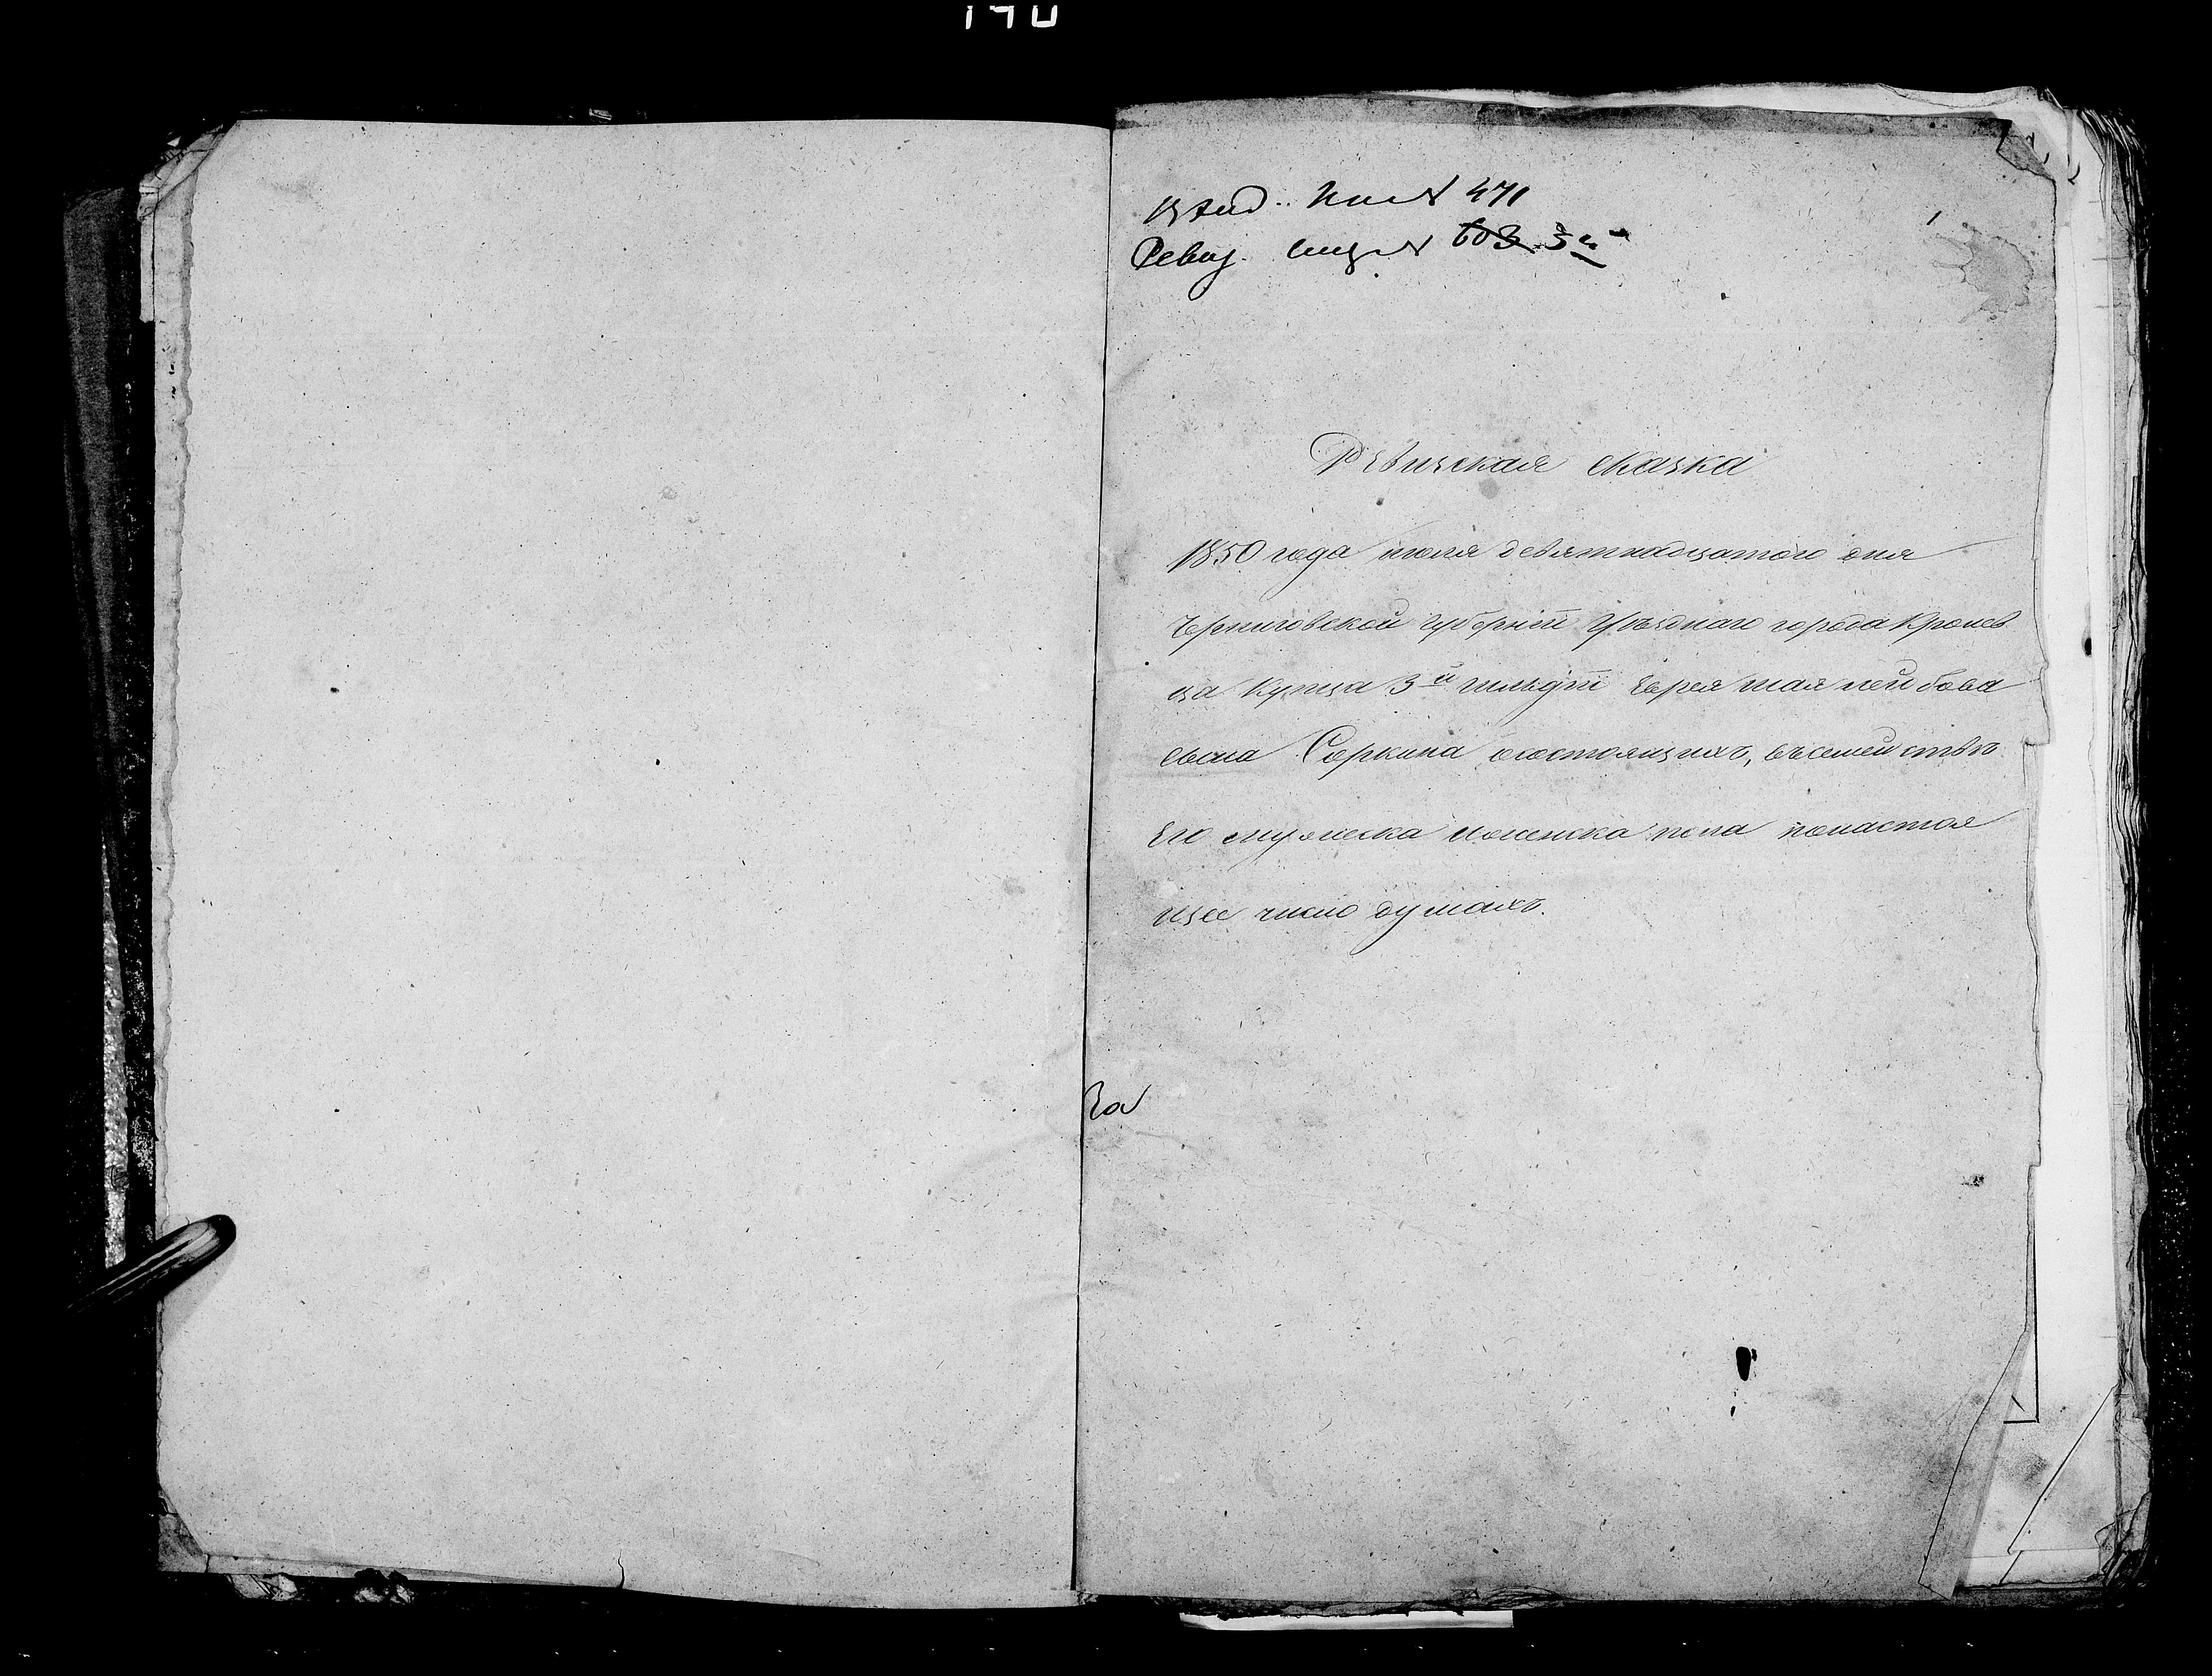 № 471
Ревиз. № 603
1
Ревизская сказка
1850 года июля девятнадцатого дня
Черниговской губернии Уѣзднаго города Кролев
ца Купца 3й гильдіи Еврея Шая Лейбова
сына Соркина осостоящихъ, въсемействѣ
Его мужеска иженска пола понастоя
щее число душахъ.
За